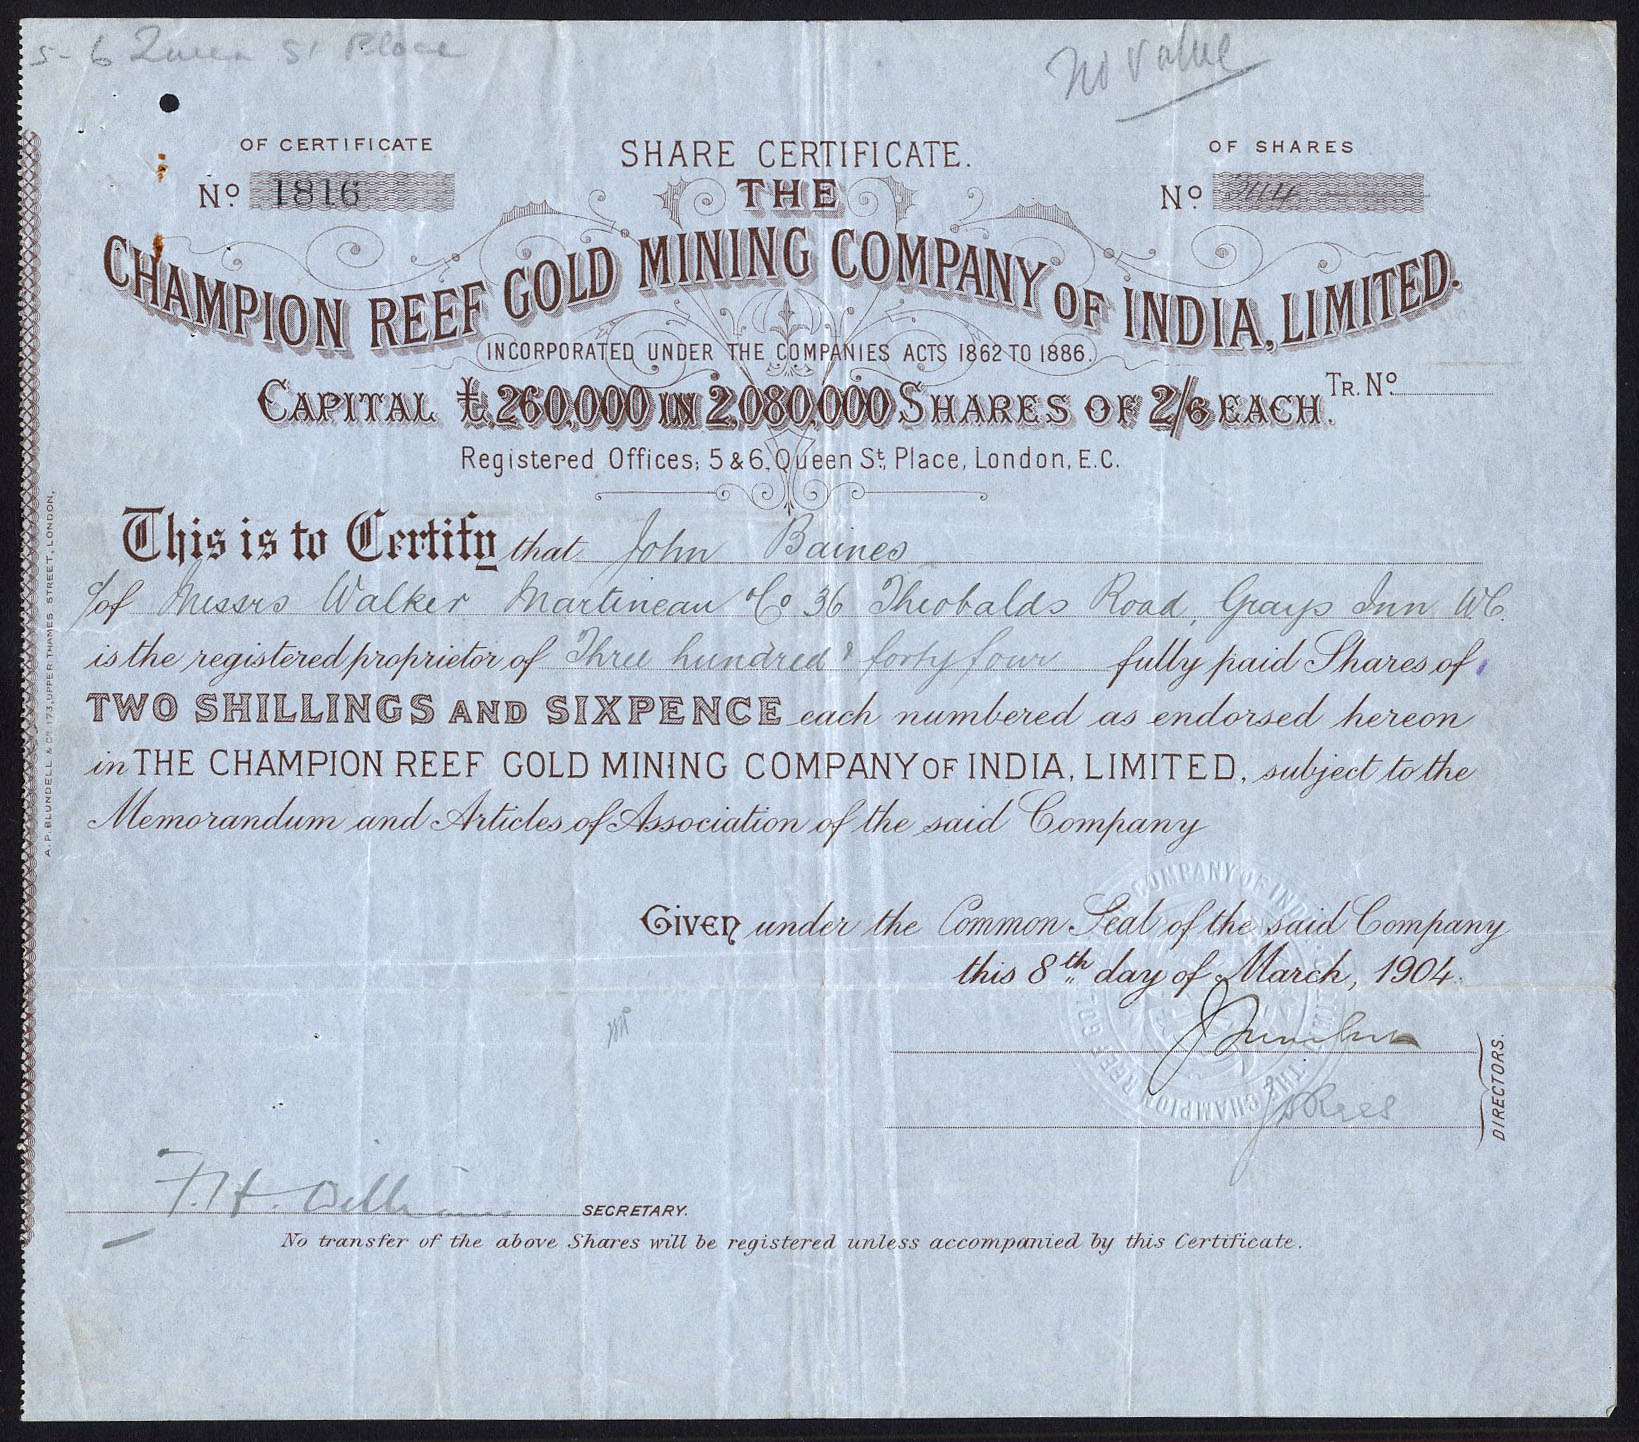 5-6 Queen St Place
No Value
OF CERTIFICATE
No. 1816
SHARE CERTIFICATE.
OF SHARES
No. 344
THE
CHAMPION REEF GOLD MINING COMPANY OF INDIA, LIMITED.
INCORPORATED UNDER THE COMPANIES ACTS 1862 TO 1886.
CAPITAL £260,000 IN 2,080,000 SHARES OF 2/6 EACH.
TR. No.
Registered Offices; 5 & 6, Queen St, Place, London, E.C.
This is to Certify that John Baines
c/of Messrs Walker Martineau & Co 36 Theobalds Road, Grays Inn W.C.
is the registered proprietor of Three hundred & forty four fully paid Shares of
TWO SHILLINGS AND SIXPENCE each numbered as endorsed hereon
in THE CHAMPION REEF GOLD MINING COMPANY OF INDIA, LIMITED, subject to the
Memorandum and Articles of Association of the said Company
GIVEN under the Common Seal of the said Company
this 8th day of March, 1904.
DIRECTORS.
F. H. Williams SECRETARY.
No transfer of the above Shares will be registered unless accompanied by this Certificate.
A. P. BLUNDELL & Co. 173, UPPER THAMES STREET, LONDON,
COMPANY OF INDIA
THE CHAMPION REEF GO